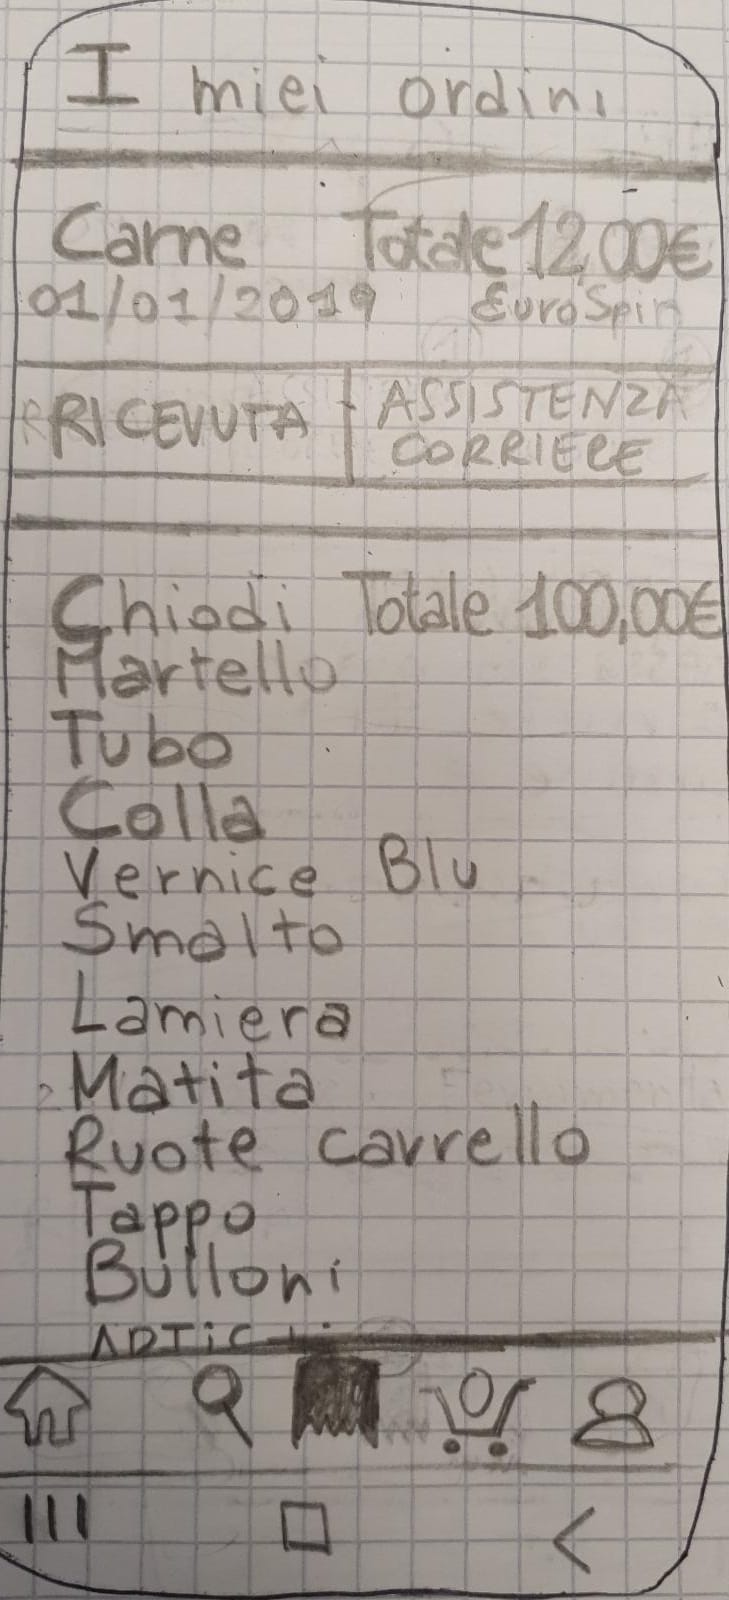 I miei ordini
Carne Totale 12,00€
01/01/2019 EuroSpin
RICEVUTA ASSISTENZA
CORRIERE
Chiodi Totale 100,00€
Martello
Tubo
Colla
Vernice Blu
Smalto
Lamiera
Matita
Ruote carrello
Tappo
Bulloni